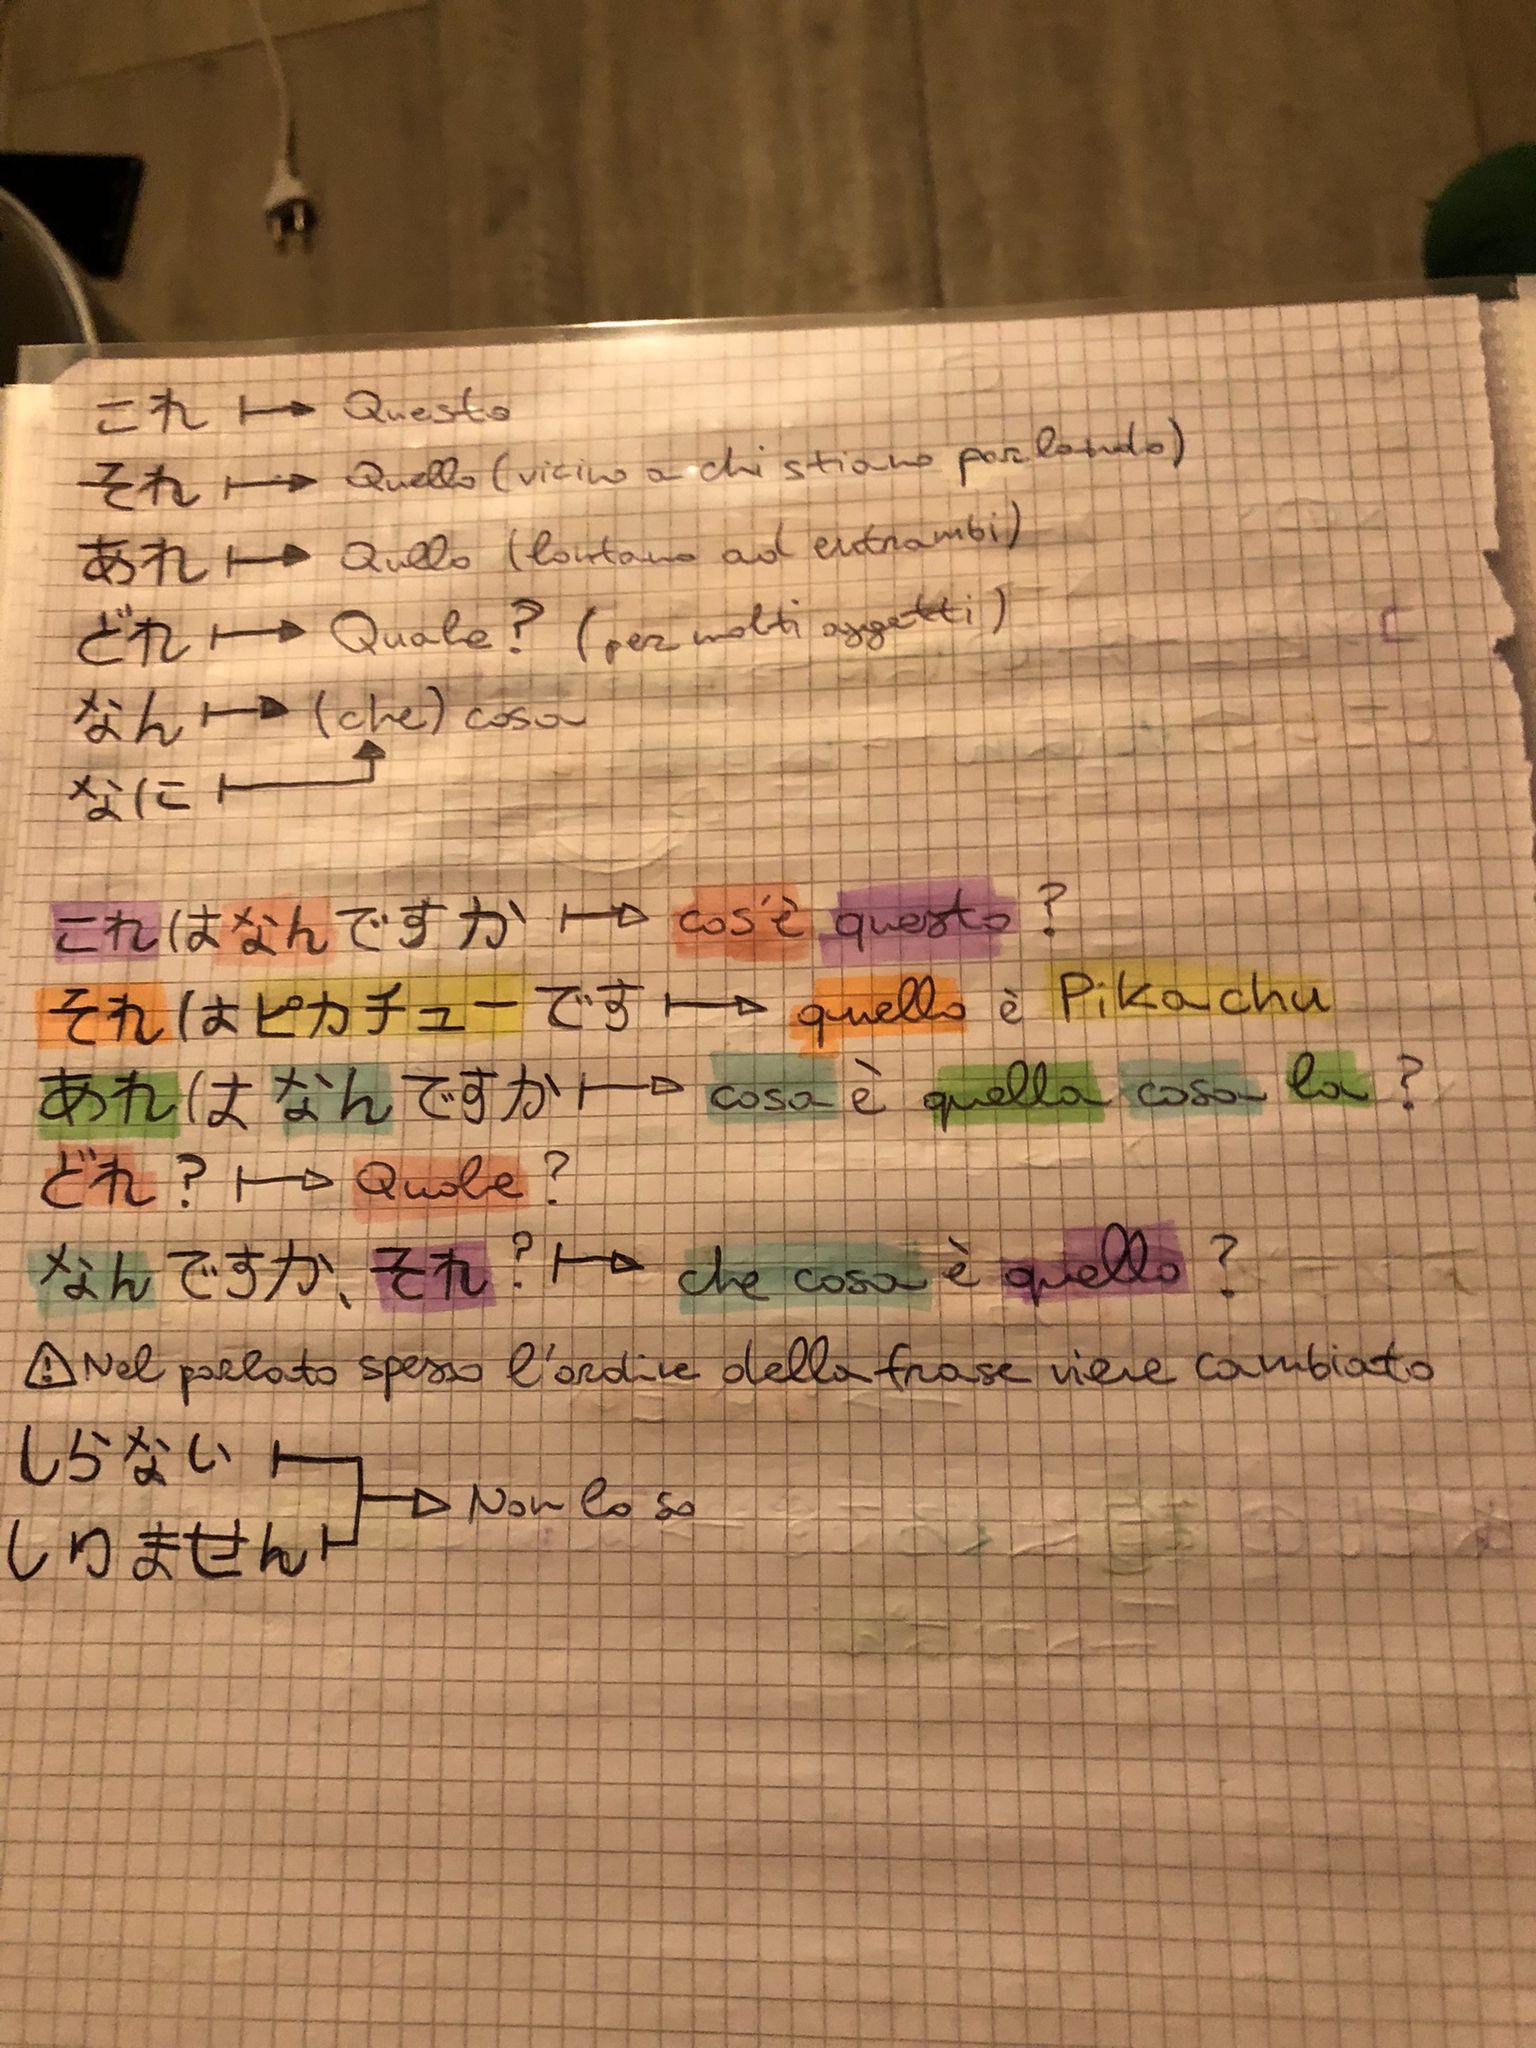 これ → Questo
それ → Quello (vicino a chi stiamo parlando)
あれ → Qullo (lontano ad entrambi)
どれ → Quale? (per molti oggetti)
なん → (che) cosa
なに
これはなんですか → cos'è questo?
それはピカチューです → quello è Pikachu
あれはなんですか → cosa è quella cosa la?
どれ? → Quale?
なんですか、それ? → che cosa è quello?
⚠Nel parlato spesso l'ordine della frase viene cambiato
しらない
→ Non lo so
しりません